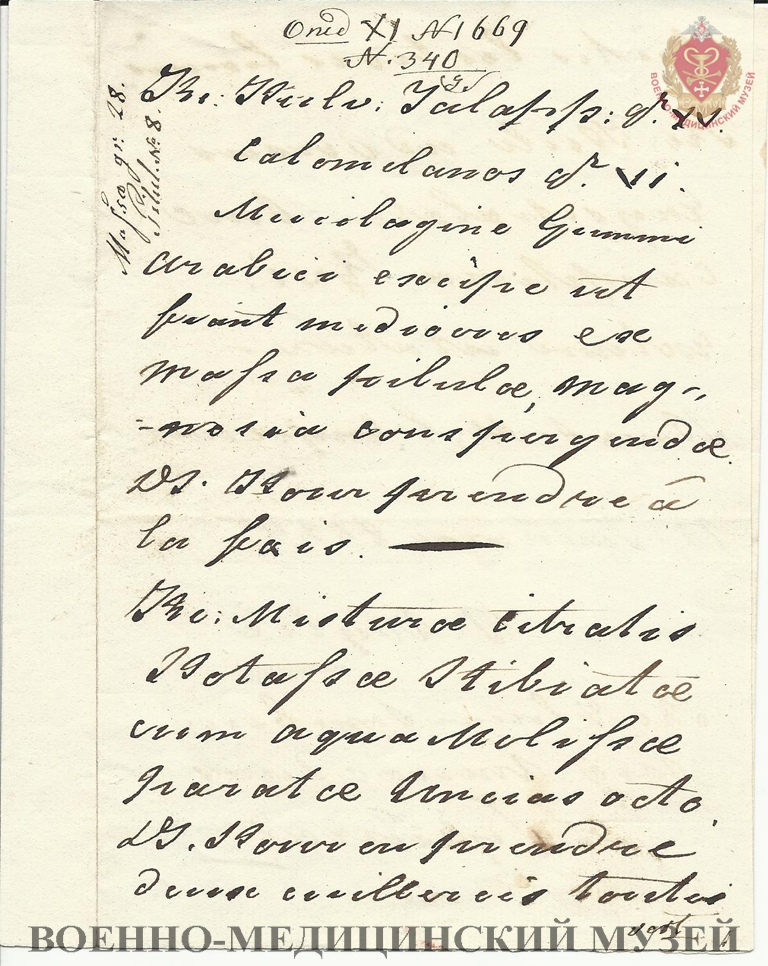 Опись XI № 1669
№ 340
Massæ gr. 28.
Pilul. № 8.
Rc: Pulv: Jalapp: gr. xv.
Calomelanos gr. vi.
Mucilagine Gummi
arabici excipe ut
fiant mediocres ex
massa pilulæ, mag-
-nesia conspergendæ.
DS. Pour prendre à
la fois.
Rc: Misturæ citratis
Potassæ Stibiatæ
cum aqua Melissæ
paratæ Uncias octo.
DS. Pour en prendre
deux cuillereis toutes
ВОЕННО-МЕДИЦИНСКИЙ МУЗЕЙ
ВОЕННО-МЕДИЦИНСКИЙ МУЗЕЙ